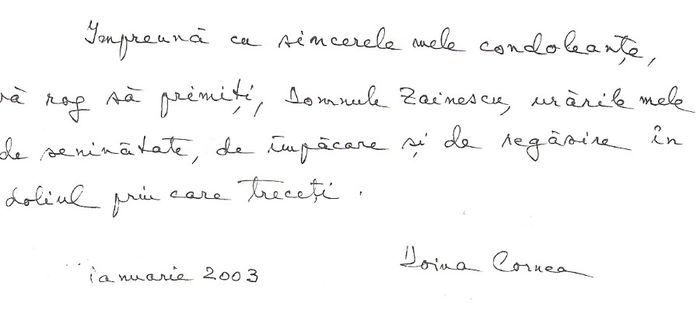 Împreună cu sincerele mele condoleanțe,
vă rog să primiți, Domnule Zainescu, urările mele
de seninătate, de împăcare și de regăsire în
doliul prin care treceți.
ianuarie 2003 Doina Cornea